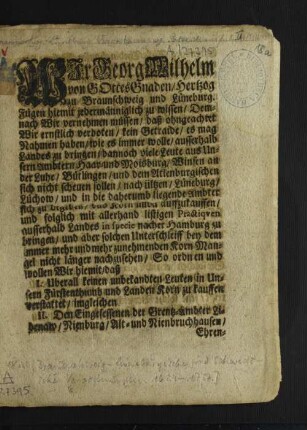 Wir Georg Wilhelm
von GOttes Gnaden/ Hertzog
zu Braunschweig und Lüneburg.
Fügen hiemit jedermänniglich zu wissen/ Dem-
nach Wir vernehmen müssen/ daß ohngeachtet
Wir ernstlich verboten/ kein Getraide/ es mag
Nahmen haben/ wie es immer wolle/ ausserhalb
Landes zu bringen/ dannoch viele Leute aus Un-
sern Aembtern Haar und Moißburg/ Winsen an
der Luhe/ Bütlingen/ und dem Altenburgischen
sich nicht scheuen sollen/ nach Ültzen/ Lüneburg/
Lüchow/ und in die daherumb liegende Aembter
sich zu begeben/ und Korn alldar auffzukauffen/
und folglich mit allerhand listigen Practiquen
ausserhalb Landes in specie nacher Hamburg zu
bringen/ und aber solchen Unterschleiff bey dem
immer mehr und mehr zunehmenden Korn-Man-
gel nicht länger nachzusehen/ So ordnen und
wollen Wir hiemit/ daß
I. Überall keinen unbekandten Leuten in Un-
sern Fürstenthumb und Landen Korn zu kauffen
verstattet/ imgleichen
II. Den Eingesessenen der Grentz-Aembter Li-
benaw/ Nienburg/ Alt- und Nienbruchhausen/
Ehren-